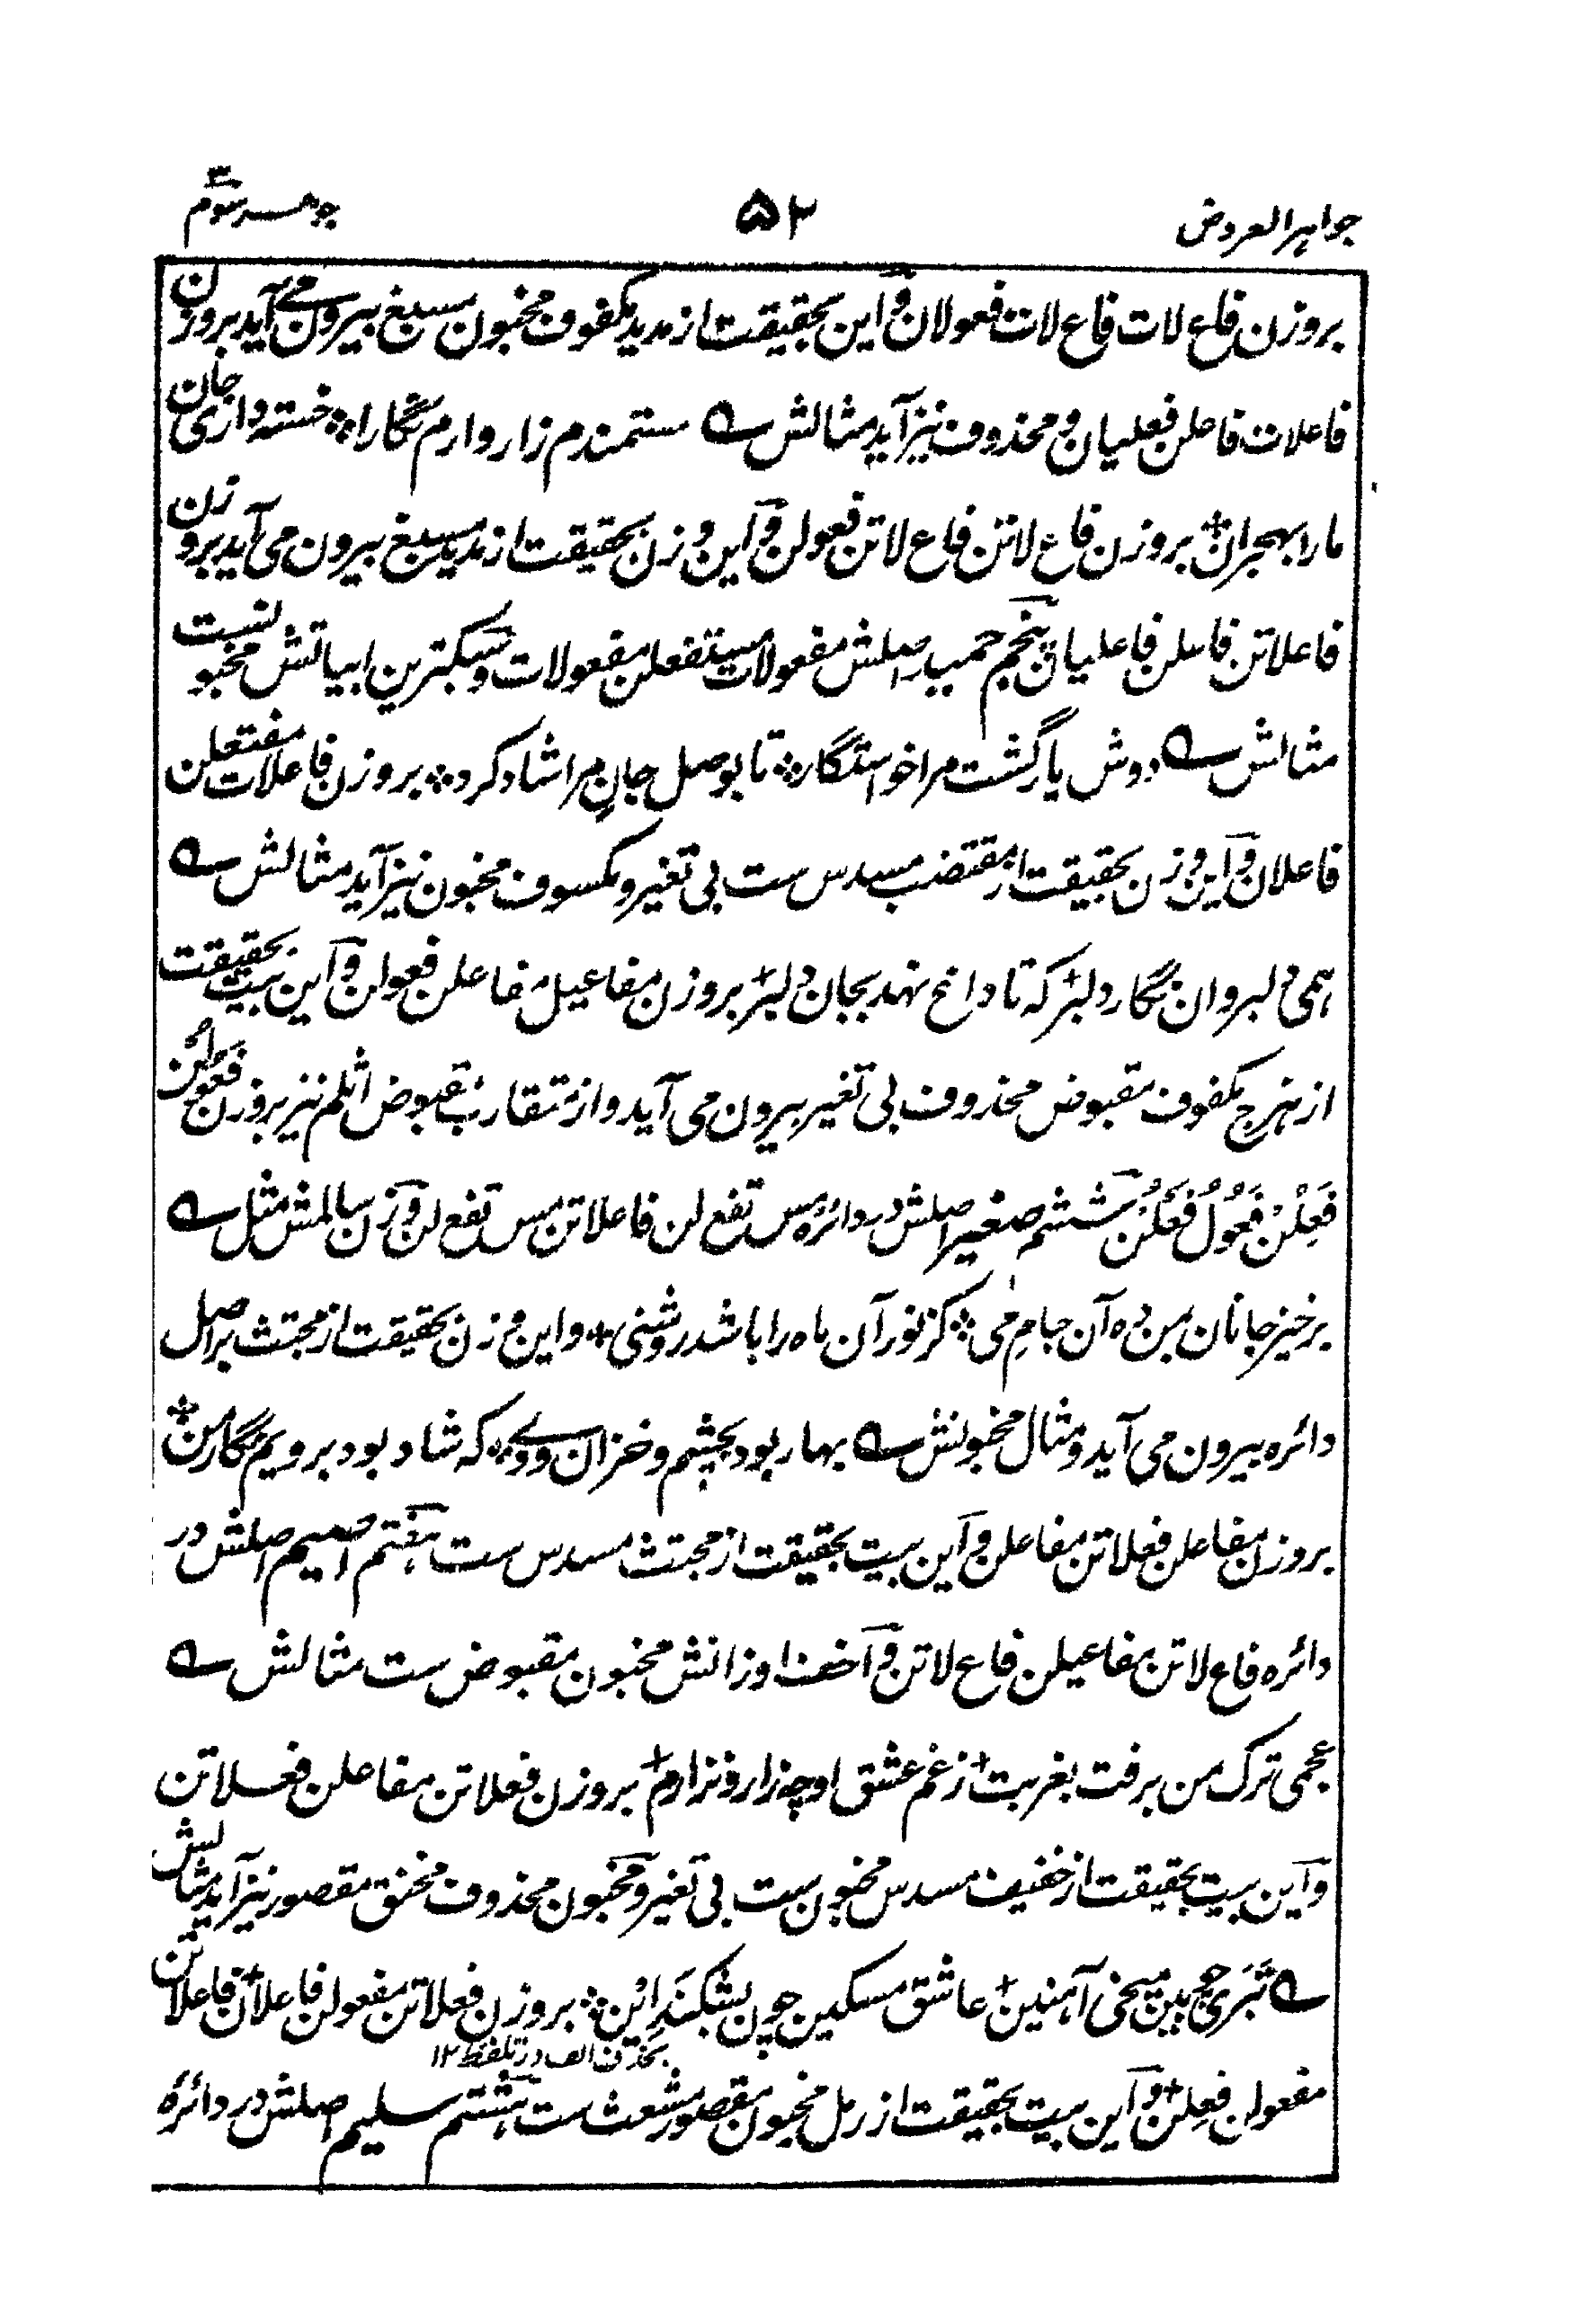 جواہر العروض ۵۲ جوہر سوم
بروزن فاع لات فاع لات فعولان و این بحقیقت از مدید مکفوف مخبون مسبغ بیرون می آید بروزن
فاعلات فاعلن فعلیان و محذوف نیز آید مثالش ے مستمندم زار و ارم نگارا ؞ خسته داری جان
مارا بهجران + بروزن فاع لاتن فاع لاتن فعولن و این وزن بحقیقت از مدید مسبغ بیرون می آید بروزن
فاعلاتن فاعلن فاعلیان پنجم حمید اصلش مفعولات مستفعلن مفعولات و سبکترین ابیاتش مخبونست
مثالش ے دوش یار گشت مرا خواستگار ؞ تا بوصل جانِ مرا شاد کرد ؞ بروزن فاعلات مفتعلن
فاعلان و این وزن بحقیقت از مقتضب مسدس ست بی تغیر و مکسوف مخبون نیز آید مثالش ے
همی دلبر وان نگار دلبر + که تا داغ نهد بجان دلبر + بروزن مفاعیل مفاعلن فعولن و این بیت بحقیقت
از هزج مکفوف مقبوض محذوف بی تغیر بیرون می آید و از متقارب مقبوض اثلم نیز بروزن فعولن
فَعِلُنْ فَعُوْلُ فَعْلُنْ ششم صغیر اصلش در دائره مس تفع لن فاعلاتن مس تفع لن وزن سالمش مثل ے
برخیز جانان بمن ده آن جامِ می ؞ کز نور آن ماه را باشد روشنی + و این وزن بحقیقت از مجتث بر اصل
دائره بیرون می آید و مثال مخبونش ے بهار بود بچشم و خزان و دی ؞ که شاد بود برویم نگار من +
بروزن مفاعلن فعلاتن مفاعلن و این بیت بحقیقت از مجتث مسدس ست هفتم اصیم اصلش در
دائره فاع لاتن مفاعیلن فاع لاتن و اخف اوزانش مخبون مقبوض ست مثالش ے
عجمی ترک من برفت بغربت + ز غم عشق او چه زار و نزارم + بروزن فعلاتن مفاعلن فعلاتن
و این بیت بحقیقت از خفیف مسدس مخبون ست بی تغیر و مخبون محذوف مخنق مقصور نیز آید مثالش
ے تَبَری چو بین میخی آهنین + عاشق مسکین چون بشکنَد اِیْن ؞ بروزن فعلاتن مفعولن فاعلان + فاعلاتن
بحذف الف در تلفظ ۱۲
مفعولن فعِلن + و این بیت بحقیقت از رمل مخبون مقصور مشعث ست هشتم سلیم اصلش در دائره